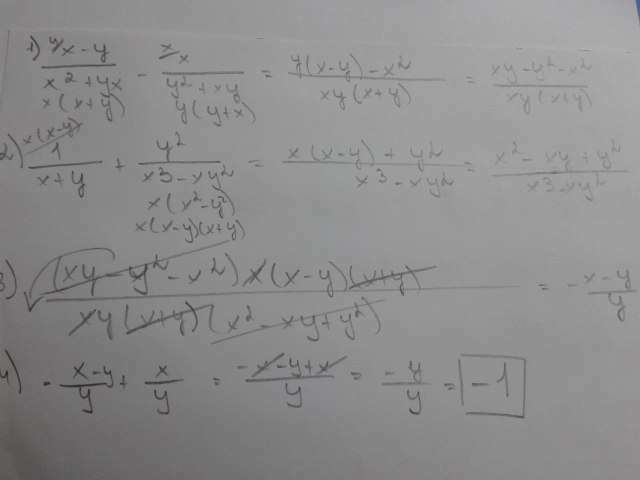 1) y/ x-y / x²+yx - x/ x / y²+xy = y(x-y)-x² / xy(x+y) = xy-y²-x² / xy(x+y)
x(x+y) y(y+x)
2) x(x-y)/ 1 / x+y + y² / x3-xy² = x(x-y)+y2 / x3-xy2 = x²-xy+y² / x3-xy²
x(x²-y²)
x(x-y)(x+y)
3) (xy-y²-x2)x(x-y)(x+y) / xy(x+y)(x²-xy+y²) = - x-y / y
4) - x-y / y + x / y = -x-y+x / y = -y / y = -1